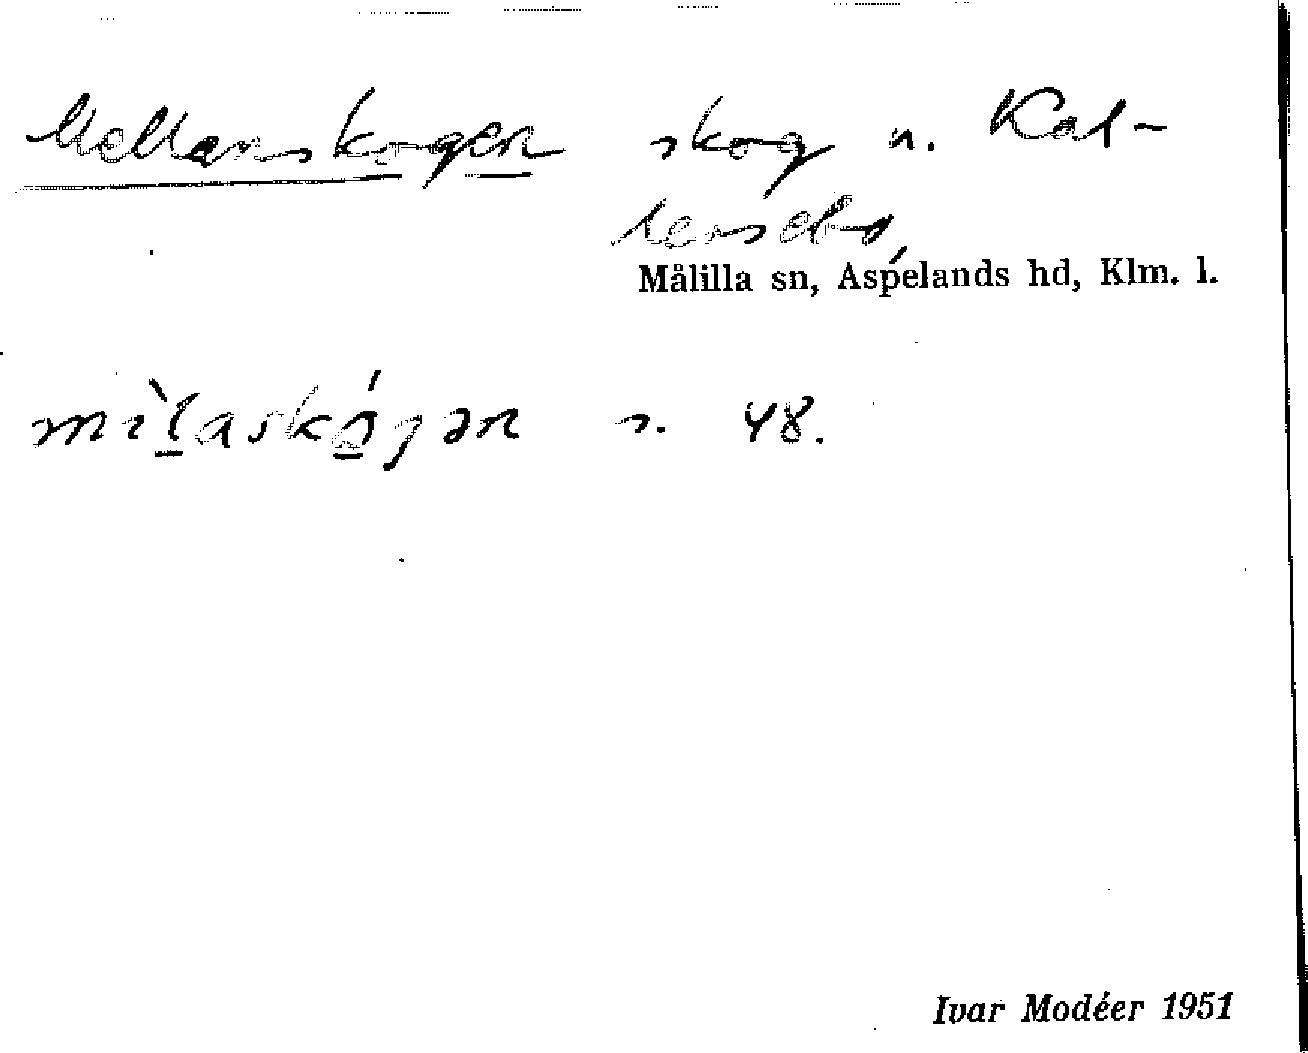 Mellanskogen skog n. Kal-
Målilla sn, Aspelands hd, Klm. l.
mìlaskógən n. 48.
Ivar Modéer 1951